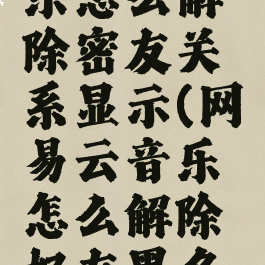 乐怎么解
除密友关
系显示(网
易云音乐
怎么解除